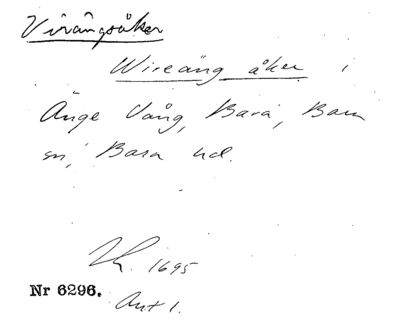 Virängsåker
Wireäng åker i
Änge Vång, Bara, Bara
sn, Bara hd.
Lh. 1695
Nr 6296.
Avt 1.